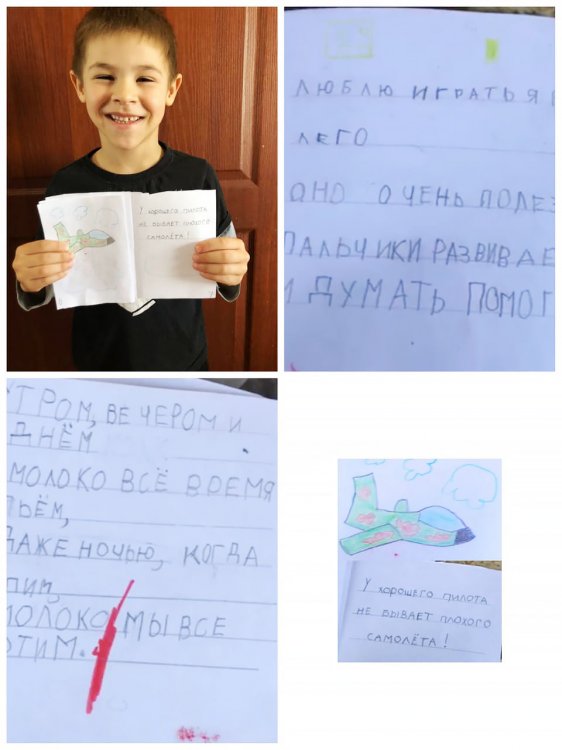 У хорошего пилота
не бывает плохого
самолёта!
ЛЮБЛЮ ИГРАТЬ Я В
ЛЕГО
ОНО ОЧЕНЬ ПОЛЕЗ
ПАЛЬЧИКИ РАЗВИВАЕ
И ДУМАТЬ ПОМОГ
ТРОМ, ВЕЧЕРОМ И
ДНЁМ
МОЛОКО ВСЁ ВРЕМЯ
ПЬЁМ,
ДАЖЕ НОЧЬЮ, КОГДА
ПИМ,
МОЛОКО МЫ ВСЕ
ОТИМ.
У хорошего пилота
не бывает плохого
самолёта!